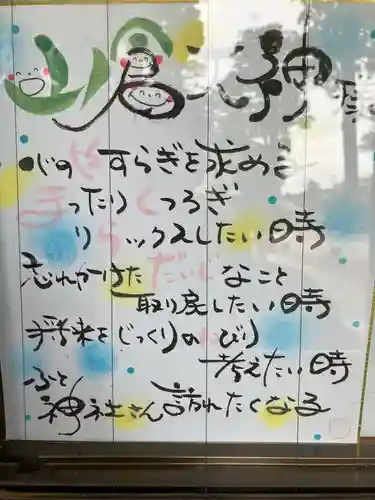 山倉大神
心の やすらぎを求め
まったり くつろぎ
りらックスしたい時
忘れかけた だいじなこと
取り戻したい時
将来をじっくりのんびり
考えたい時
ふと
神社さん訪れたくなる